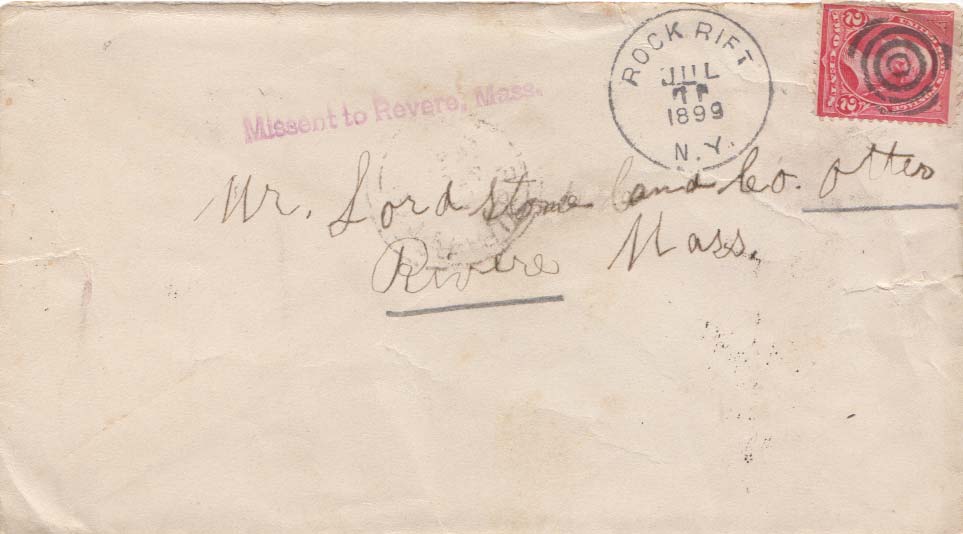 ROCK RIFT
JUL
1899
N.Y.
2 2
Missent to Revere, Mass.
Mr. Lord Stone and Co. Otter
Rivere Mass.